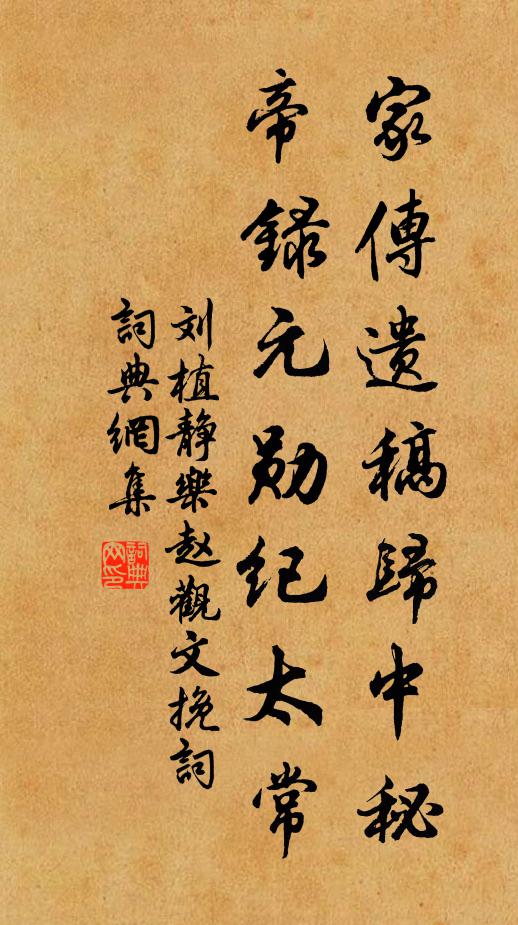 家傳遺稿歸中秘
帝録元勋纪太常
刘植静樂赵觀文挽詞
詞典網集
詞典
网印